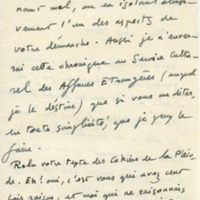 nant mal, ou en isolant
vement l'un des aspects de
votre démarche. Aussi je n'enver-
rai cette chronique au Service Cultu-
rel des Affaires Etrangères (auquel
je le destine) que si vous me dites,
en toute simplicité, que je peux le
faire.
Relu votre texte des Cahiers de la Pléia-
de. Eh! oui, c'est vous qui avez cent
fois raison, et moi qui ne raisonnais